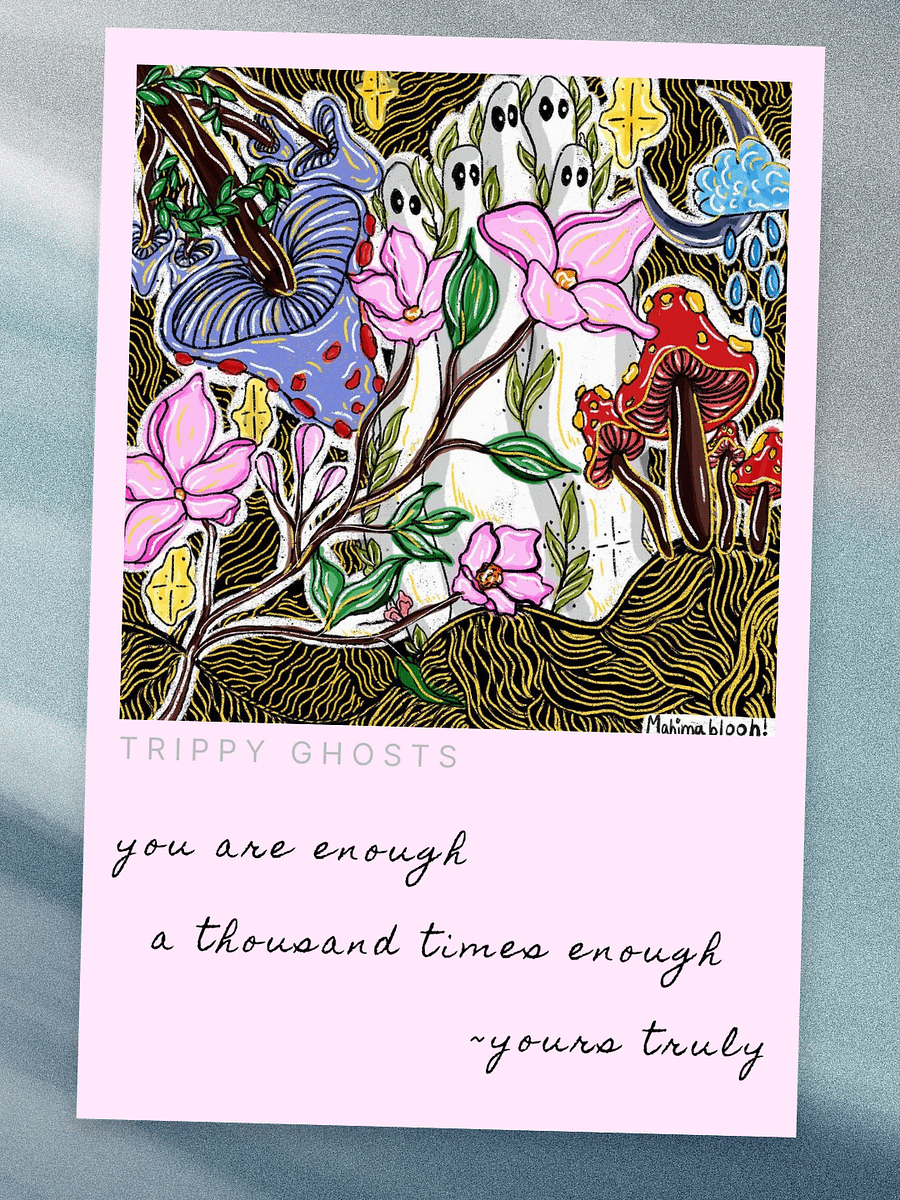 Mahima blooh!
TRIPPY GHOSTS
you are enough
a thousand times enough
~yours truly